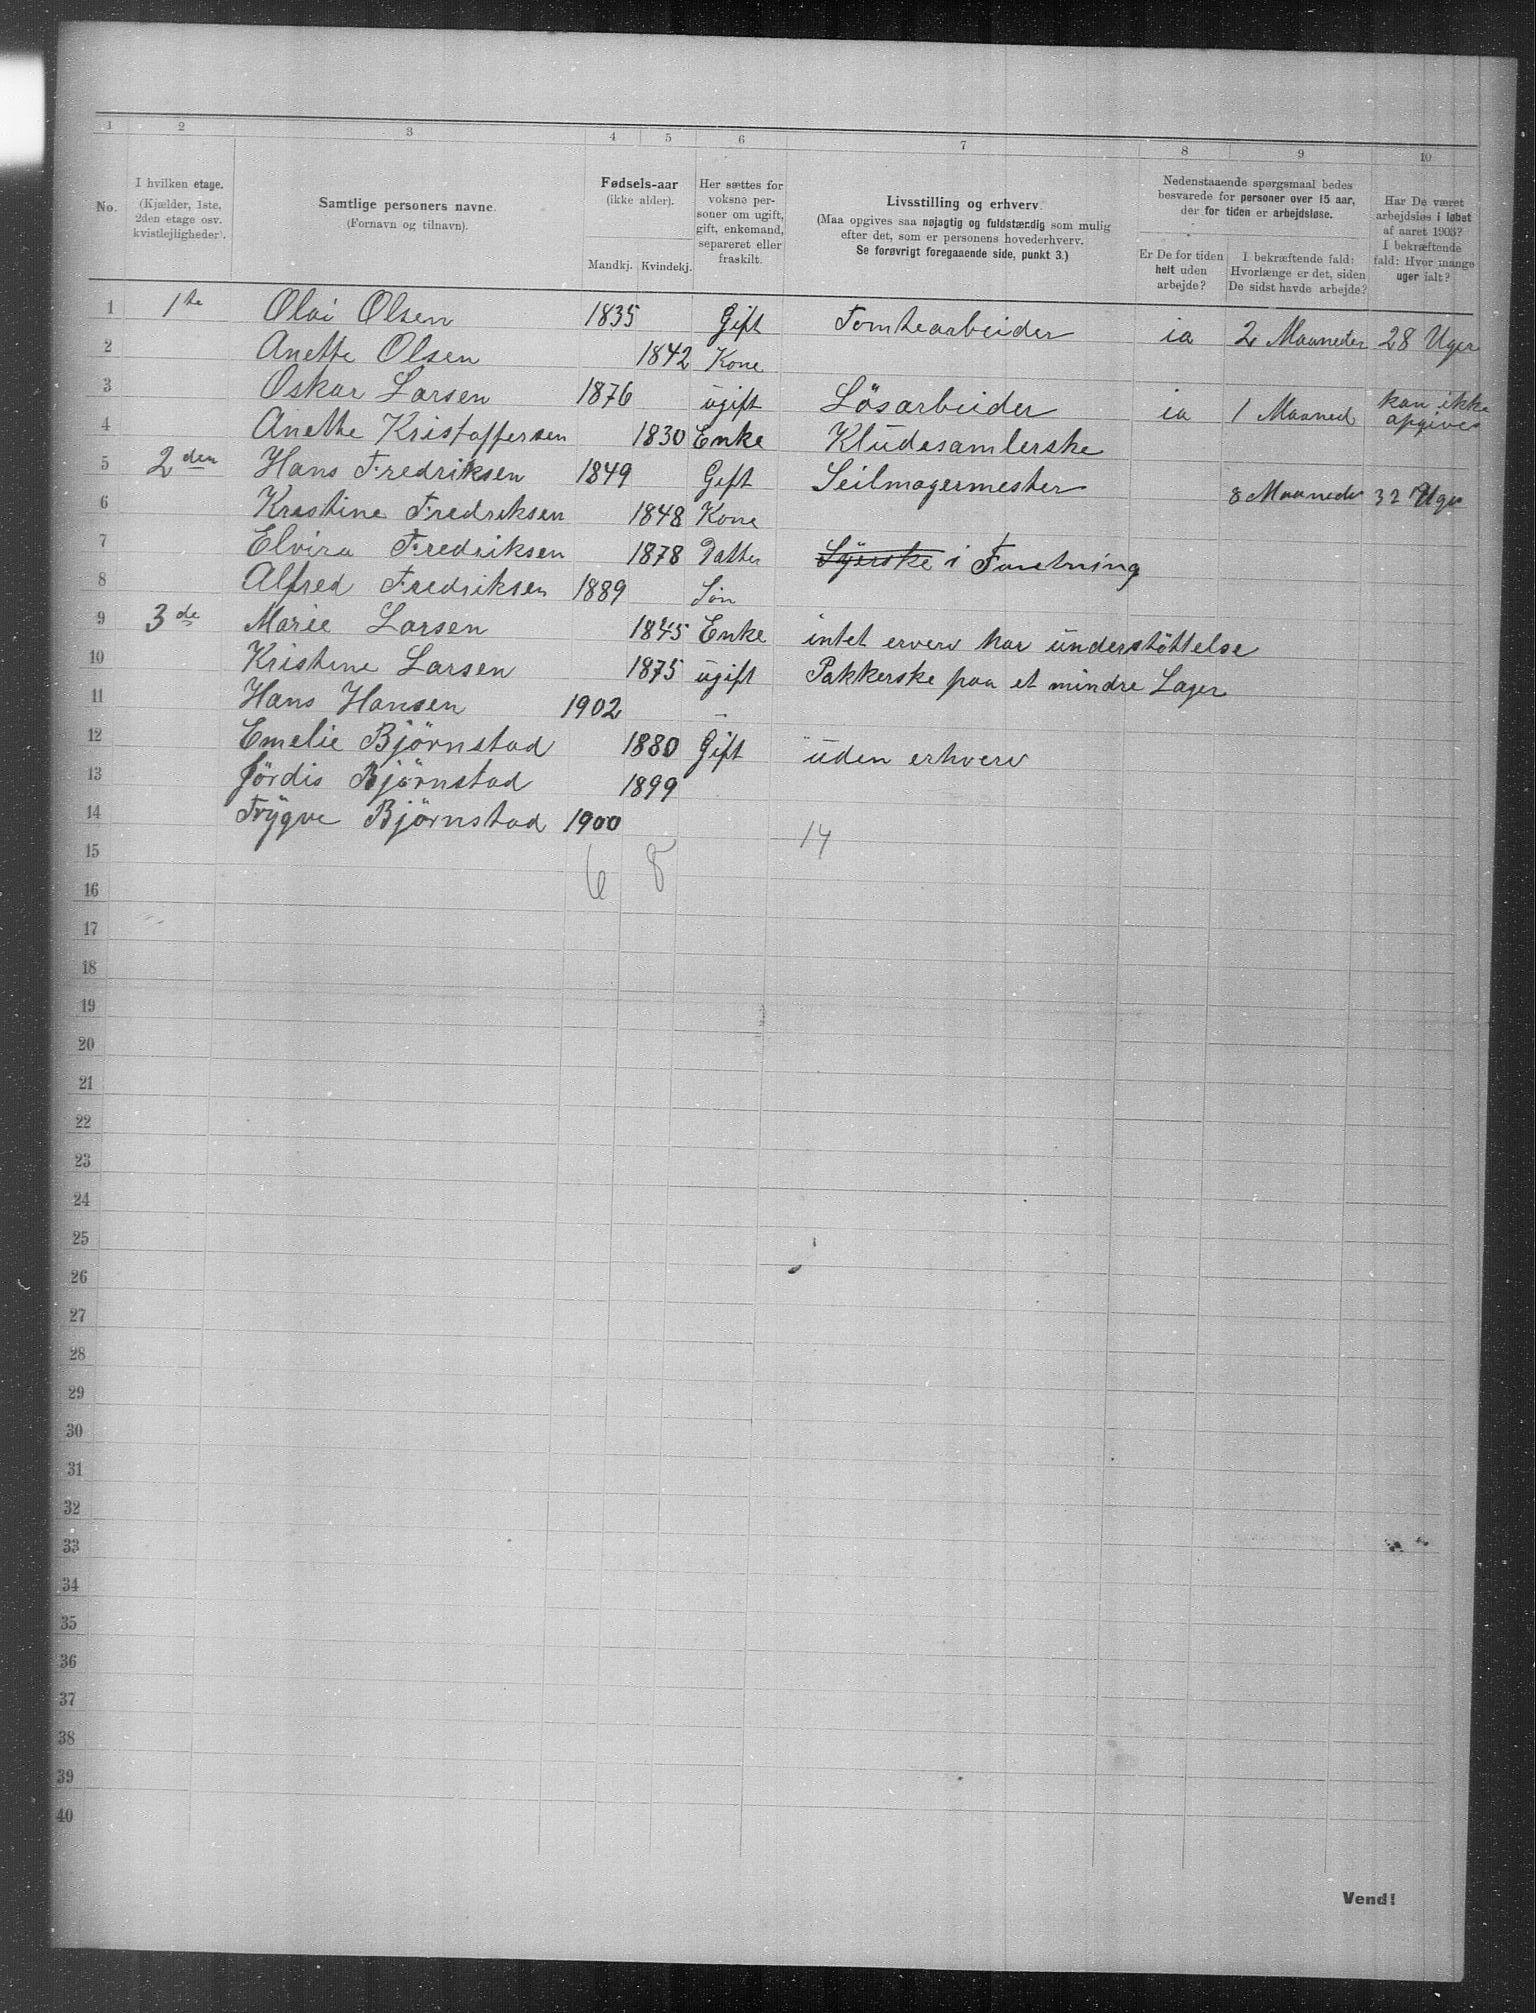 1 2 3 4 5 6 7 8 9 10
No.
I hvilken etage.
(Kjælder, 1ste,
2den etage osv.
kvistlejligheder).
Samtlige personers navne.
(Fornavn og tilnavn).
Fødsels-aar
(ikke alder).
Mandkj. Kvindekj.
Her sættes for
voksne per-
soner om ugift,
gift, enkemand,
separeret eller
fraskilt.
Livsstilling og erhverv.
(Maa opgives saa nøjagtig og fuldstændig som mulig
efter det, som er personens hovederhverv.
Se forøvrigt foregaaende side, punkt 3.)
Nedenstaaende spørgsmaal bedes
besvarede for personer over 15 aar,
der for tiden er arbejdsløse.
Er De for tiden
helt uden
arbejde?
I bekræftende fald:
Hvorlænge er det, siden
De sidst havde arbejde?
Har De været
arbejdsløs i løbet
af aaret 1903?
I bekræftende
fald: Hvor mange
uger ialt?
1 1te Olai Olsen 1835 Gift Tomtearbeider ia 2 Maaneder 28 Uger
2 Anette Olsen 1842 Kone
3 Oskar Larsen 1876 ugift Lösarbeider ia 1 Maaned kan ikke opgives
4 Anette Kristoffersen 1830 Enke Kludesamlerske
5 2den Hans Fredriksen 1849 Gift Seilmagermester 8 Maaneder 32 Uger
6 Kristine Fredriksen 1848 Kone
7 Elvira Fredriksen 1878 Datter Syerske i Forretning
8 Alfred Fredriksen 1889 Sön
9 3de Marie Larsen 1845 Enke intet erverv har understöttelse
10 Kristine Larsen 1875 ugift Pakkerske paa et mindre Lager
11 Hans Hansen 1902 –
12 Emelie Björnstad 1880 Gift uden erhverv
13 Jördis Björnstad 1899
14 Trygve Björnstad 1900
15 6 8 14
16
17
18
19
20
21
22
23
24
25
26
27
28
29
30
31
32
33
34
35
36
37
38
39
40
Vend!